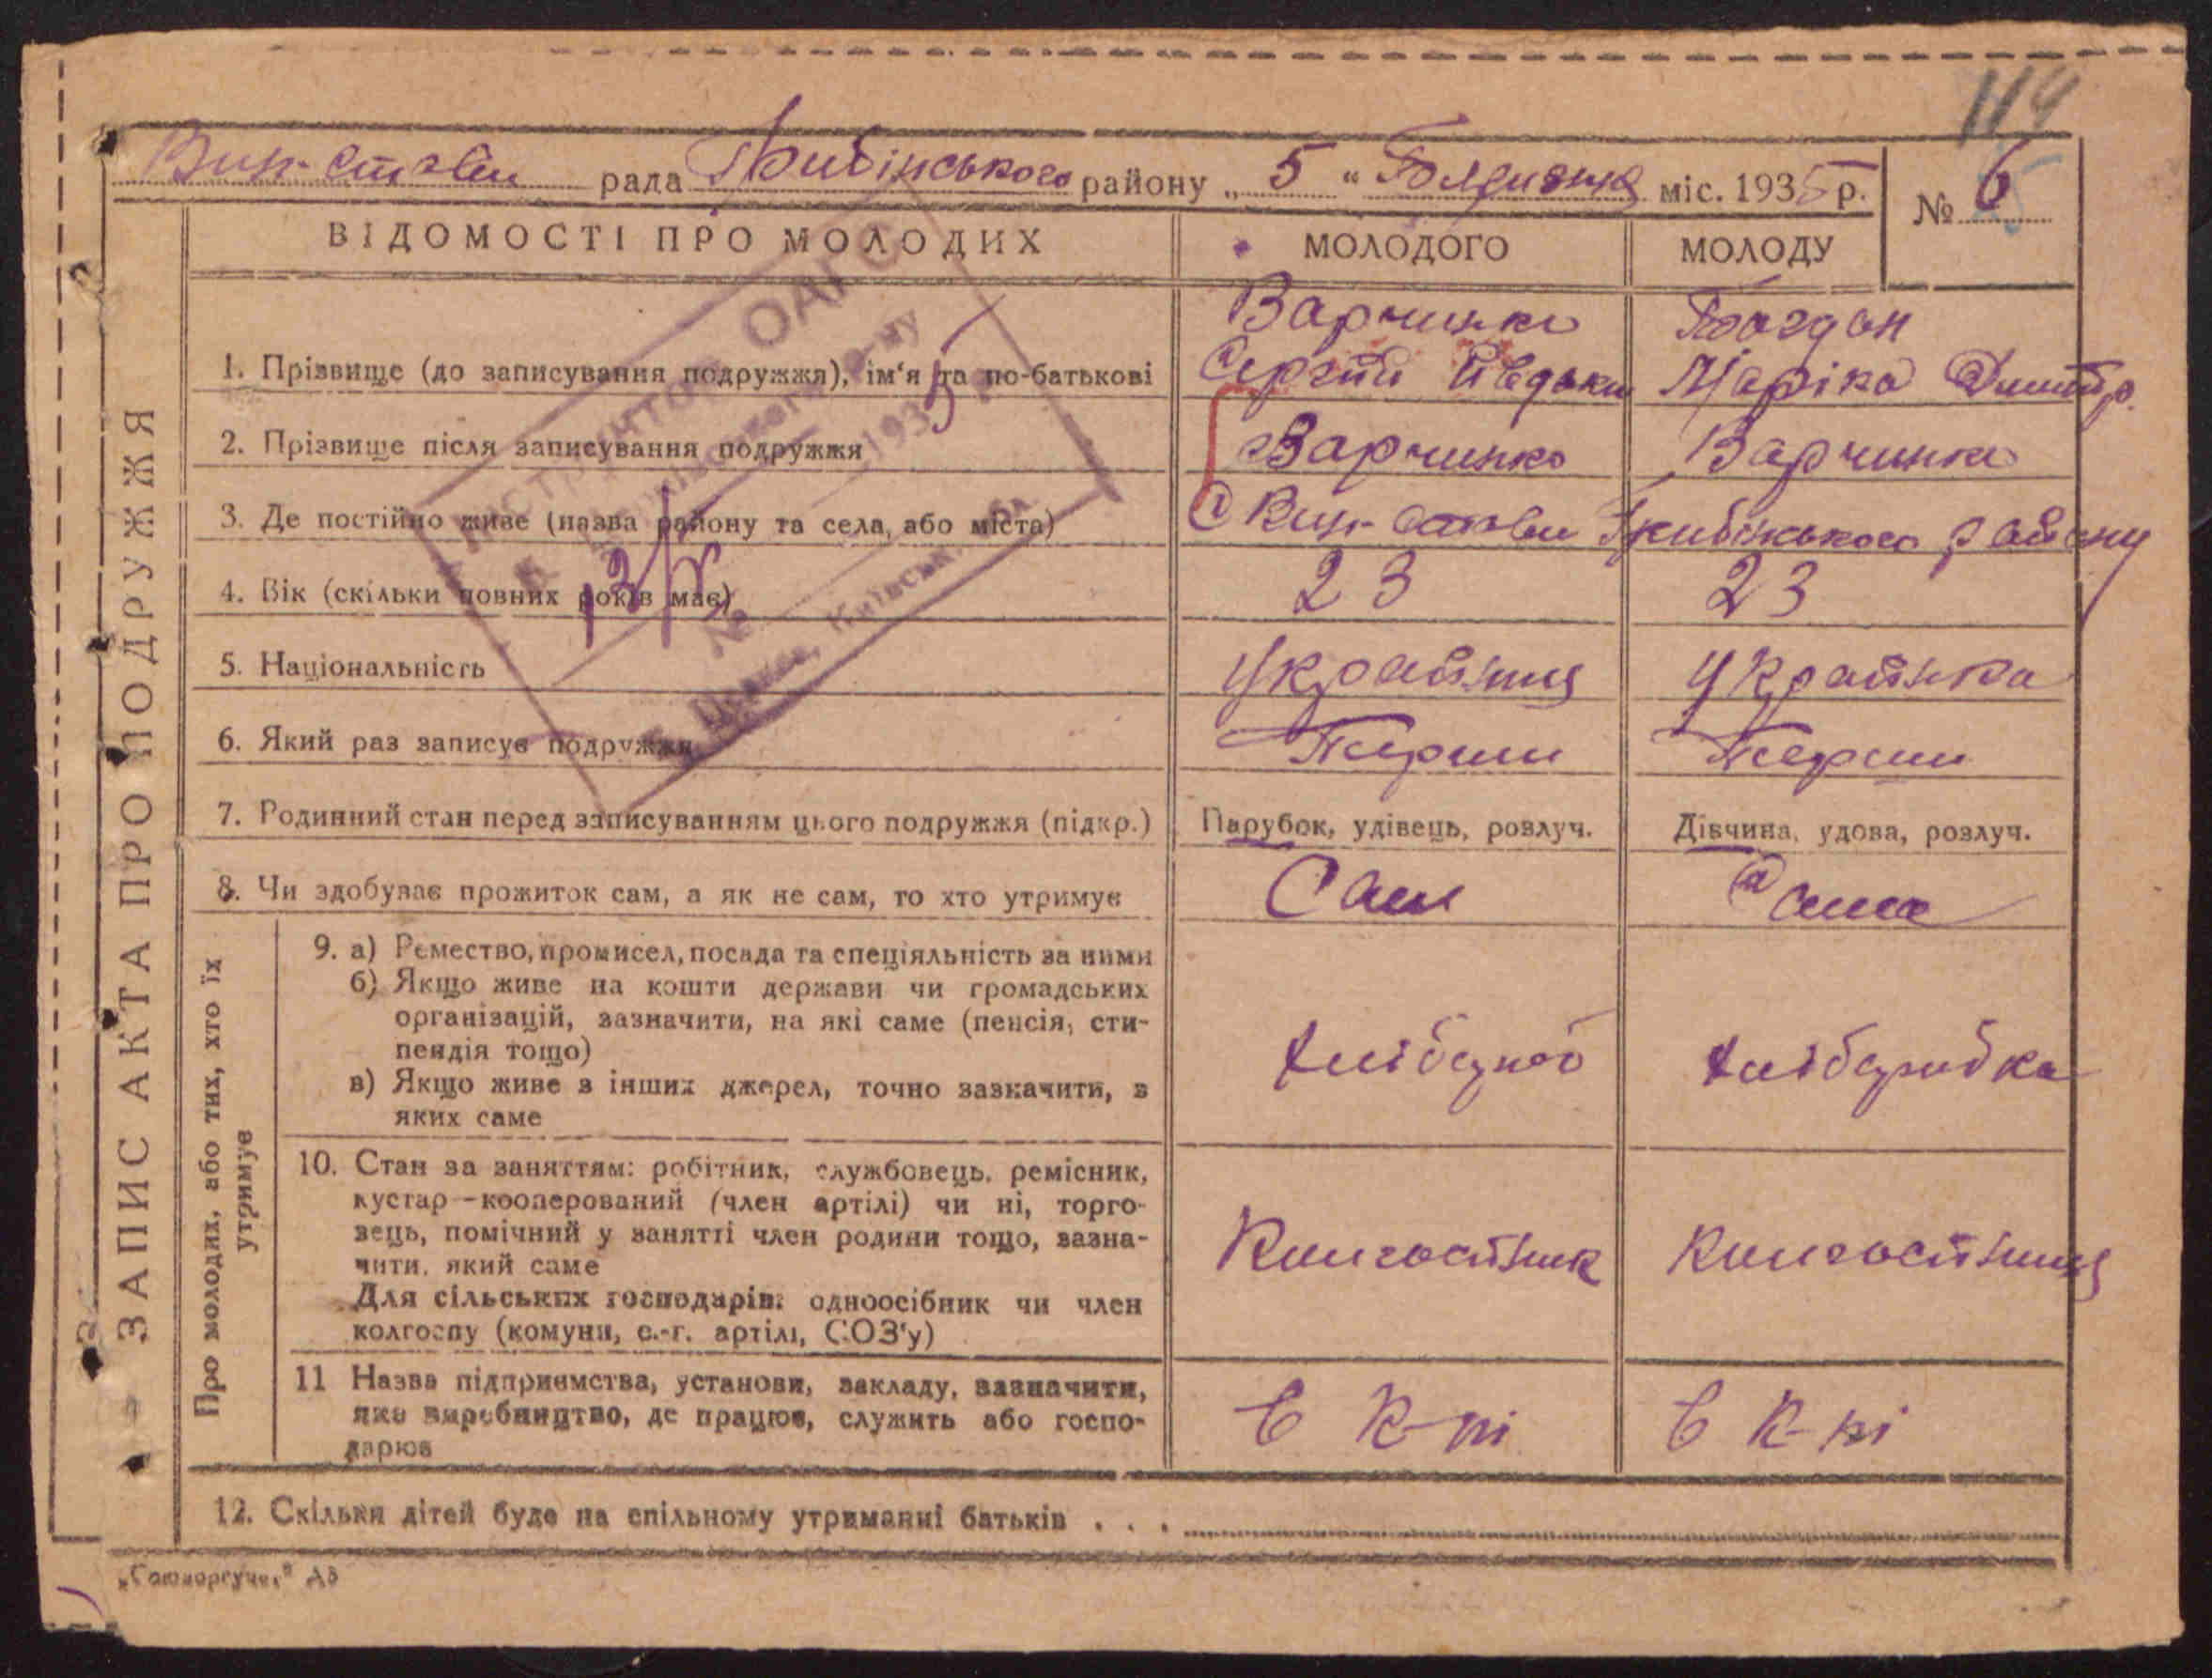 114
Вин-Стави рада Гребінського району „5“ міс. 1935 р.
№ 6
ВІДОМОСТІ ПРО МОЛОДИХ МОЛОДОГО МОЛОДУ
ЗАПИС АКТА ПРО ПОДРУЖЖЯ
1. Прізвище (до записування подружжя), ім‘я та по-батькові
Варчинко Богдан
Сергій Маріка Дмитр.
2. Прізвище після записування подружжя Варчинко Варчинко
3. Де постійно живе (назва району та села, або міста) Вин-Стави Гребінського району
4. Вік (скільки повних років має) 23 23
5. Національність Українец Українка
6. Який раз записує подружжя Перши Перши
7. Родинний стан перед записуванням цього подружжя (підкр.) Парубок, удівець, розлуч. Дівчина, удова, розлуч.
8. Чи здобуває прожиток сам, а як не сам, то хто утримує Сам Сама
Про молодих, або тих, хто їх утримує
9. а) Ремество, промисел, посада та спеціяльність за ними
б) Якщо живе на кошти держави чи громадських
організацій, зазначити, на які саме (пенсія, сти-
пендія тощо)
в) Якщо живе з інших джерел, точно зазначити, з
яких саме
хлібороб хліборобка
10. Стан за заняттям: робітник, службовець, ремісник,
кустар-кооперований (член артілі) чи ні, торго-
вець, помічний у занятті член родини тощо, зазна-
чити, який саме
Для сільських господарів: одноосібник чи член
колгоспу (комуни, с.-г. артілі, СОЗ‘у)
Колгоспник Колгоспниця
11 Назва підприємства, установи, закладу, зазначити,
яке виробництво, де працює, служить або госпо-
дарює
в К-пі в К-пі
12. Скільки дітей буде на спільному утриманні батьків . . .
ІНСТРУКТОР ОАГС
Б. Церківського р-ну
193 5
№
Б. Церква, Київськ. обл.